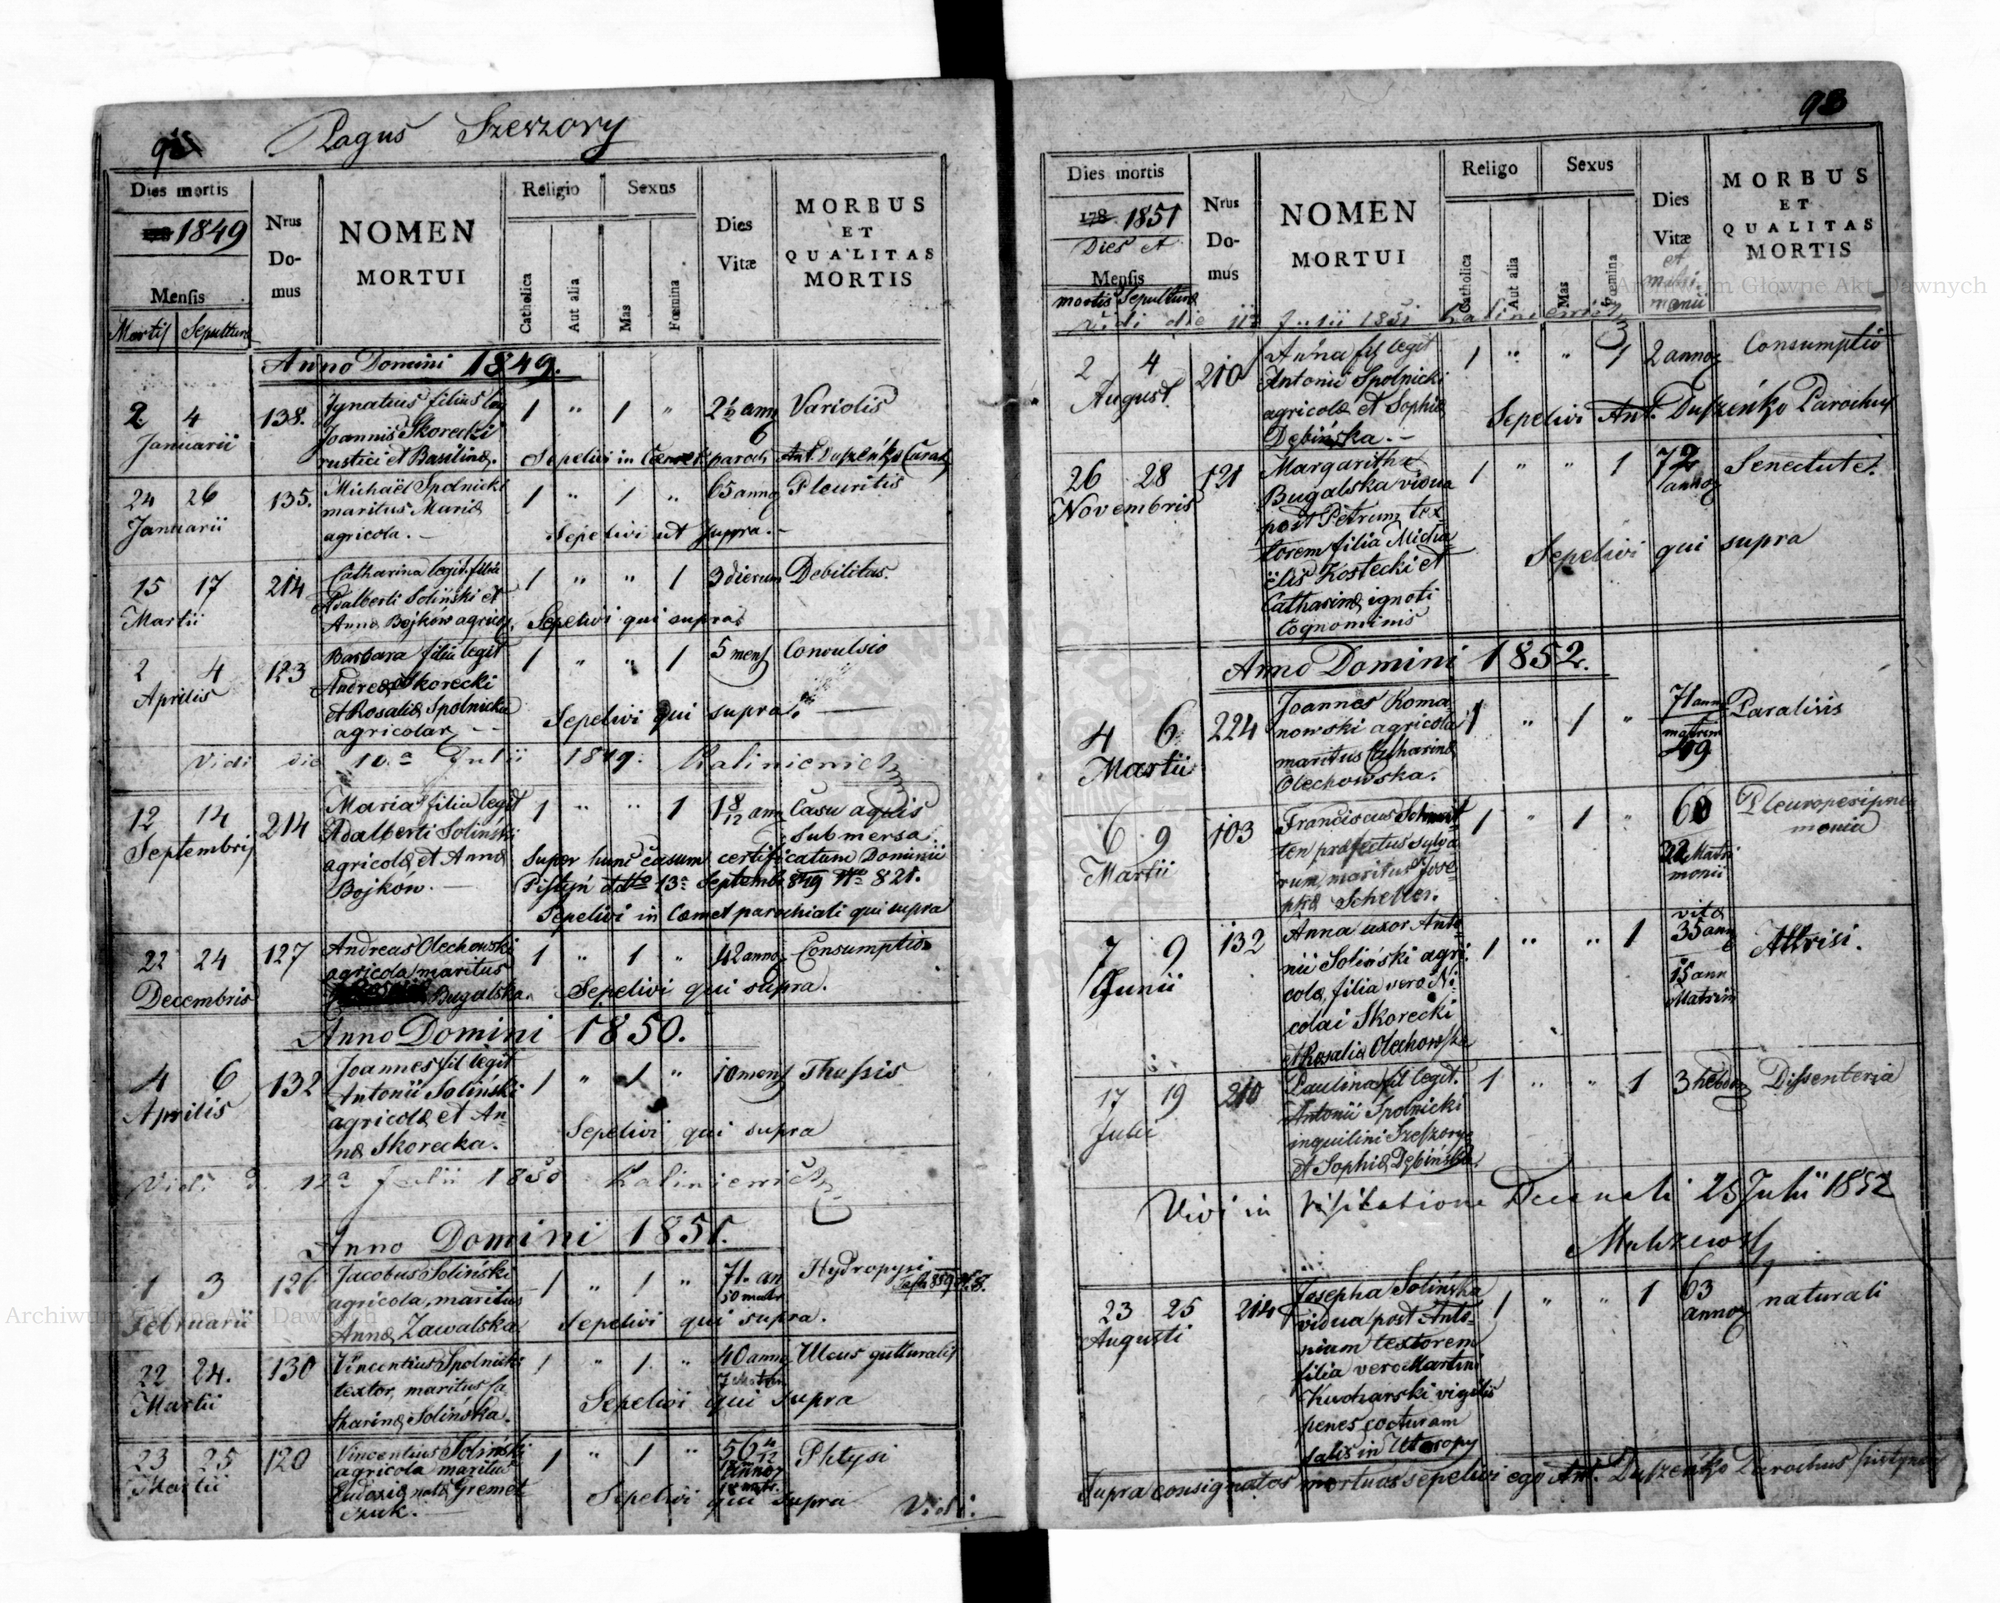 Pagus Szeszory
Dies mortis
1849
Mensis
Mortis Sepulturæ
Nrus Domus
NOMEN
MORTUI
Religio
Catholica
Aut alia
Sexus
Mas
Fœmina
Dies
Vitæ
MORBUS
ET
QUALITAS
MORTIS
Anno Domini 1849.
2 4 138. Ignatius filius leg 1 " 1 " 2½ ann Variolis
Januarii Joannis Skorecki
rustici et Basilinæ. Sepelivi in Cœmet paroch Ant. Duszeńko Curat
24 26 135. Michaël Spolnicki 1 " 1 " 65 annoz Pleuritis
Januarii maritus Mariæ
agricola. Sepelivi ut supra.
15 17 214 Catharina legit. filia 1 " " 1 3 dierum Debilitas.
Martii Adalberti Soliński et
Annæ Bojków agricoz. Sepelivi qui supra
2 4 123 Barbara filia legit 1 " " 1 5 mens Convulsio
Aprilis Andreæ Skorecki
et Rosaliæ Spolnicka Sepelivi qui supra.
agricolar
Vidi die 10.a Julii 1849. Kaliniewicz
12 14 214 Maria filia legit 1 " " 1 1 8/12 ann Casu aquis
Septembris Adalberti Soliński submersa
agricolæ et Annæ Super hunc casum certificatum Dominii
Bojków. Pistyń ddto 13a Septemb. 849 No 821.
Sepelivi in Cœmet parochiali qui supra
22 24 127 Andreas Olechowski 1 " 1 " 42 annoz Consumptio
Decembris agricola maritus
Bugalska. Sepelivi qui supra.
Anno Domini 1850.
4 6 132 Joannes fil legit 1 " 1 " 10 mens Thussis
Aprilis Antonii Soliński
agricolæ et An-
næ Skorecka. Sepelivi qui supra
Vidi d. 12a Julii 1850 Kaliniewicz
Anno Domini 1851.
1 3 126 Jacobus Soliński 1 " 1 " 71. an Hydropysi
Februarii agricola, maritus 50 matr
Annæ Zawalska Sepelivi qui supra.
22 24. 130 Vincentius Spolnicki 1 " 1. " 40 anno Ulcus gutturalis
Martii textor, maritus Ca
tharinæ Solińska. Sepelivi qui supra
23 25 120 Vincentius Soliński 1 " 1 " 56 4/12 Phtysi
Martii agricola maritus annoz
natæ Gremet
czuk. Sepelivi qui supra Vidi.
93
Dies mortis
178 1851
Dies et
Mensis
mortis Sepulturæ
Nrus
Do-
mus
NOMEN
MORTUI
Religo
Catholica
Aut alia
Sexus
Mas
Fœmina
Dies
Vitæ
et
matri
monii
MORBUS
ET
QUALITAS
MORTIS
Vidi die Julii 1851 Kaliniewicz
2 4 210 Anna fil legit 1 " " 1 2 annoz Consumptio
August. Antonii Spolnicki
agricolæ et Sophiæ Sepelivi Ant. Duszeńko Parochus
Dębińska.
26 28 121 Margaritha 1 " " 1 72 annoz Senectute.
Novembris Bugalska vidua
post Petrum tex
torem filia Micha
ëlis Kostecki et Sepelivi qui supra
Catharinæ ignoti
Cognominis
Anno Domini 1852.
4 6 224 Joannes Roma 1 " 1 " 71 ann Paralisis
Martii nowski agricola matrim
maritus Catharinæ 49
Olechowska.
6 9 103 Franciscus Schmit 1 " 1 " 60 Pleuroperipneu
Martii ten præfectus sylva monia
rum, maritus Jose 22 Matri
phæ Scheller. monii
7 9 132 Anna uxor Anto- 1 " " 1 vitæ 35 ann Attrisi.
Junii nii Soliński agri
colæ, filia vero Ni- 15 ann
colai Skorecki Matrim
et Rosaliæ Olechowska
17 19 210 Paulina fil legit. 1 " " 1 3 hebdo Dissenteria
Julii Antonii Spolnicki
inquilini Szeszory
et Sophiæ Dębińska.
Vidi in Visitatione Decanali 25 Julii 1852
23 25 214 Josepha Solińska 1 " " 1 63 annoz naturali
Augusti vidua post Anto-
nium textorem
filia vero Martini
Kucharski vigilis
penes cocturam
salis in Utoropy
Supra consignatos mortuos sepelivi ego Ant. Duszeńko Parochus
Archiwum Główne Akt Dawnych
Archiwum Główne Akt Dawnych